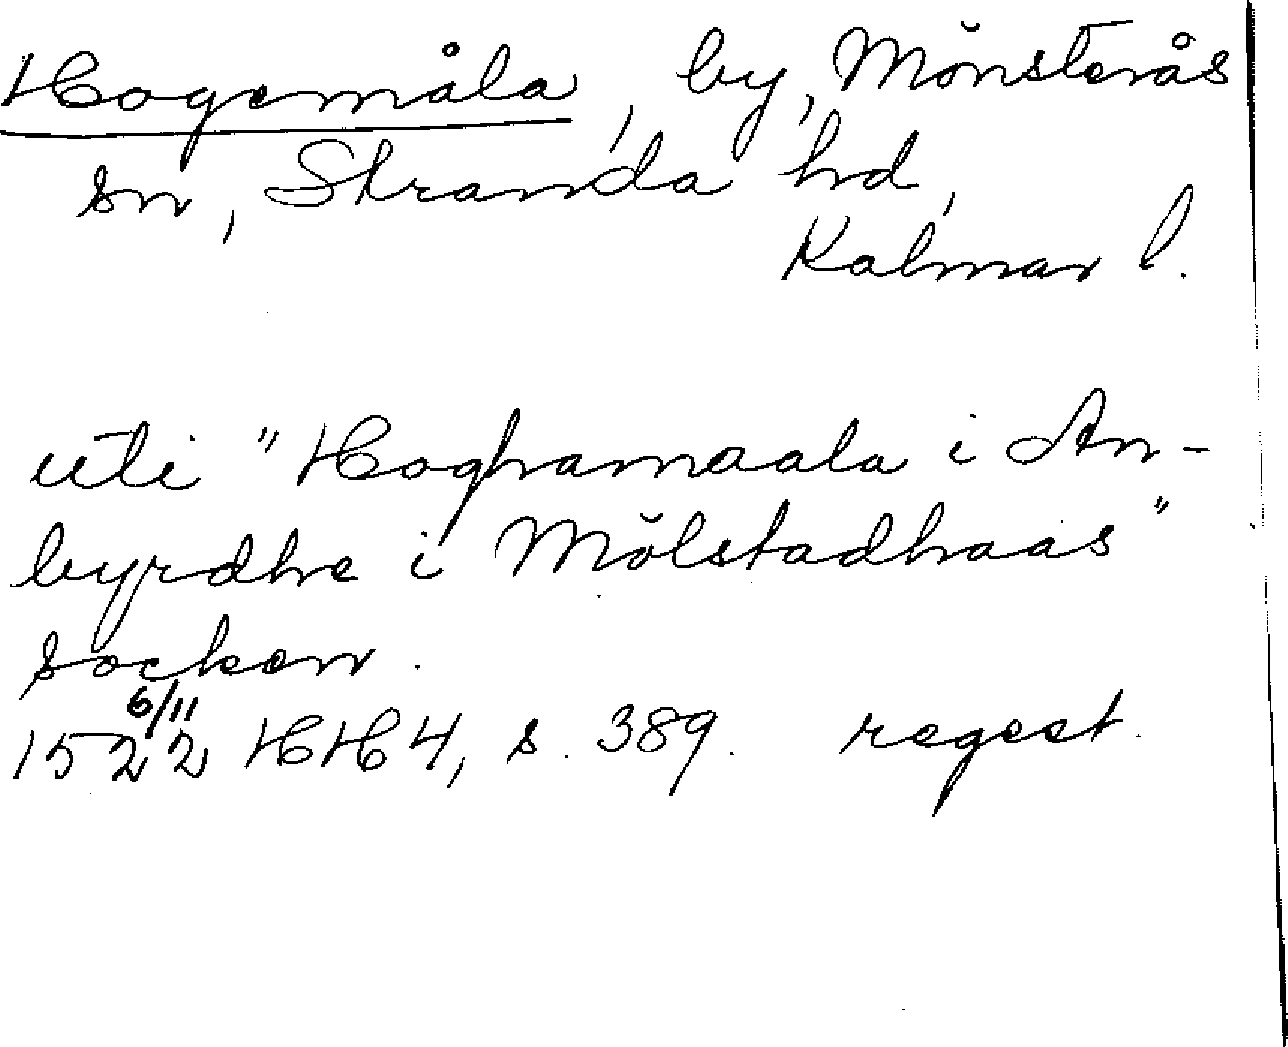 Hogemåla, by, Mönsterås
sn, Stranda hd,
Kalmar l.
uti "Hoghamaala i An-
byrdhe i Mölstadhaas"
socken.
1522 6/11 HH 4, s. 389. regest.